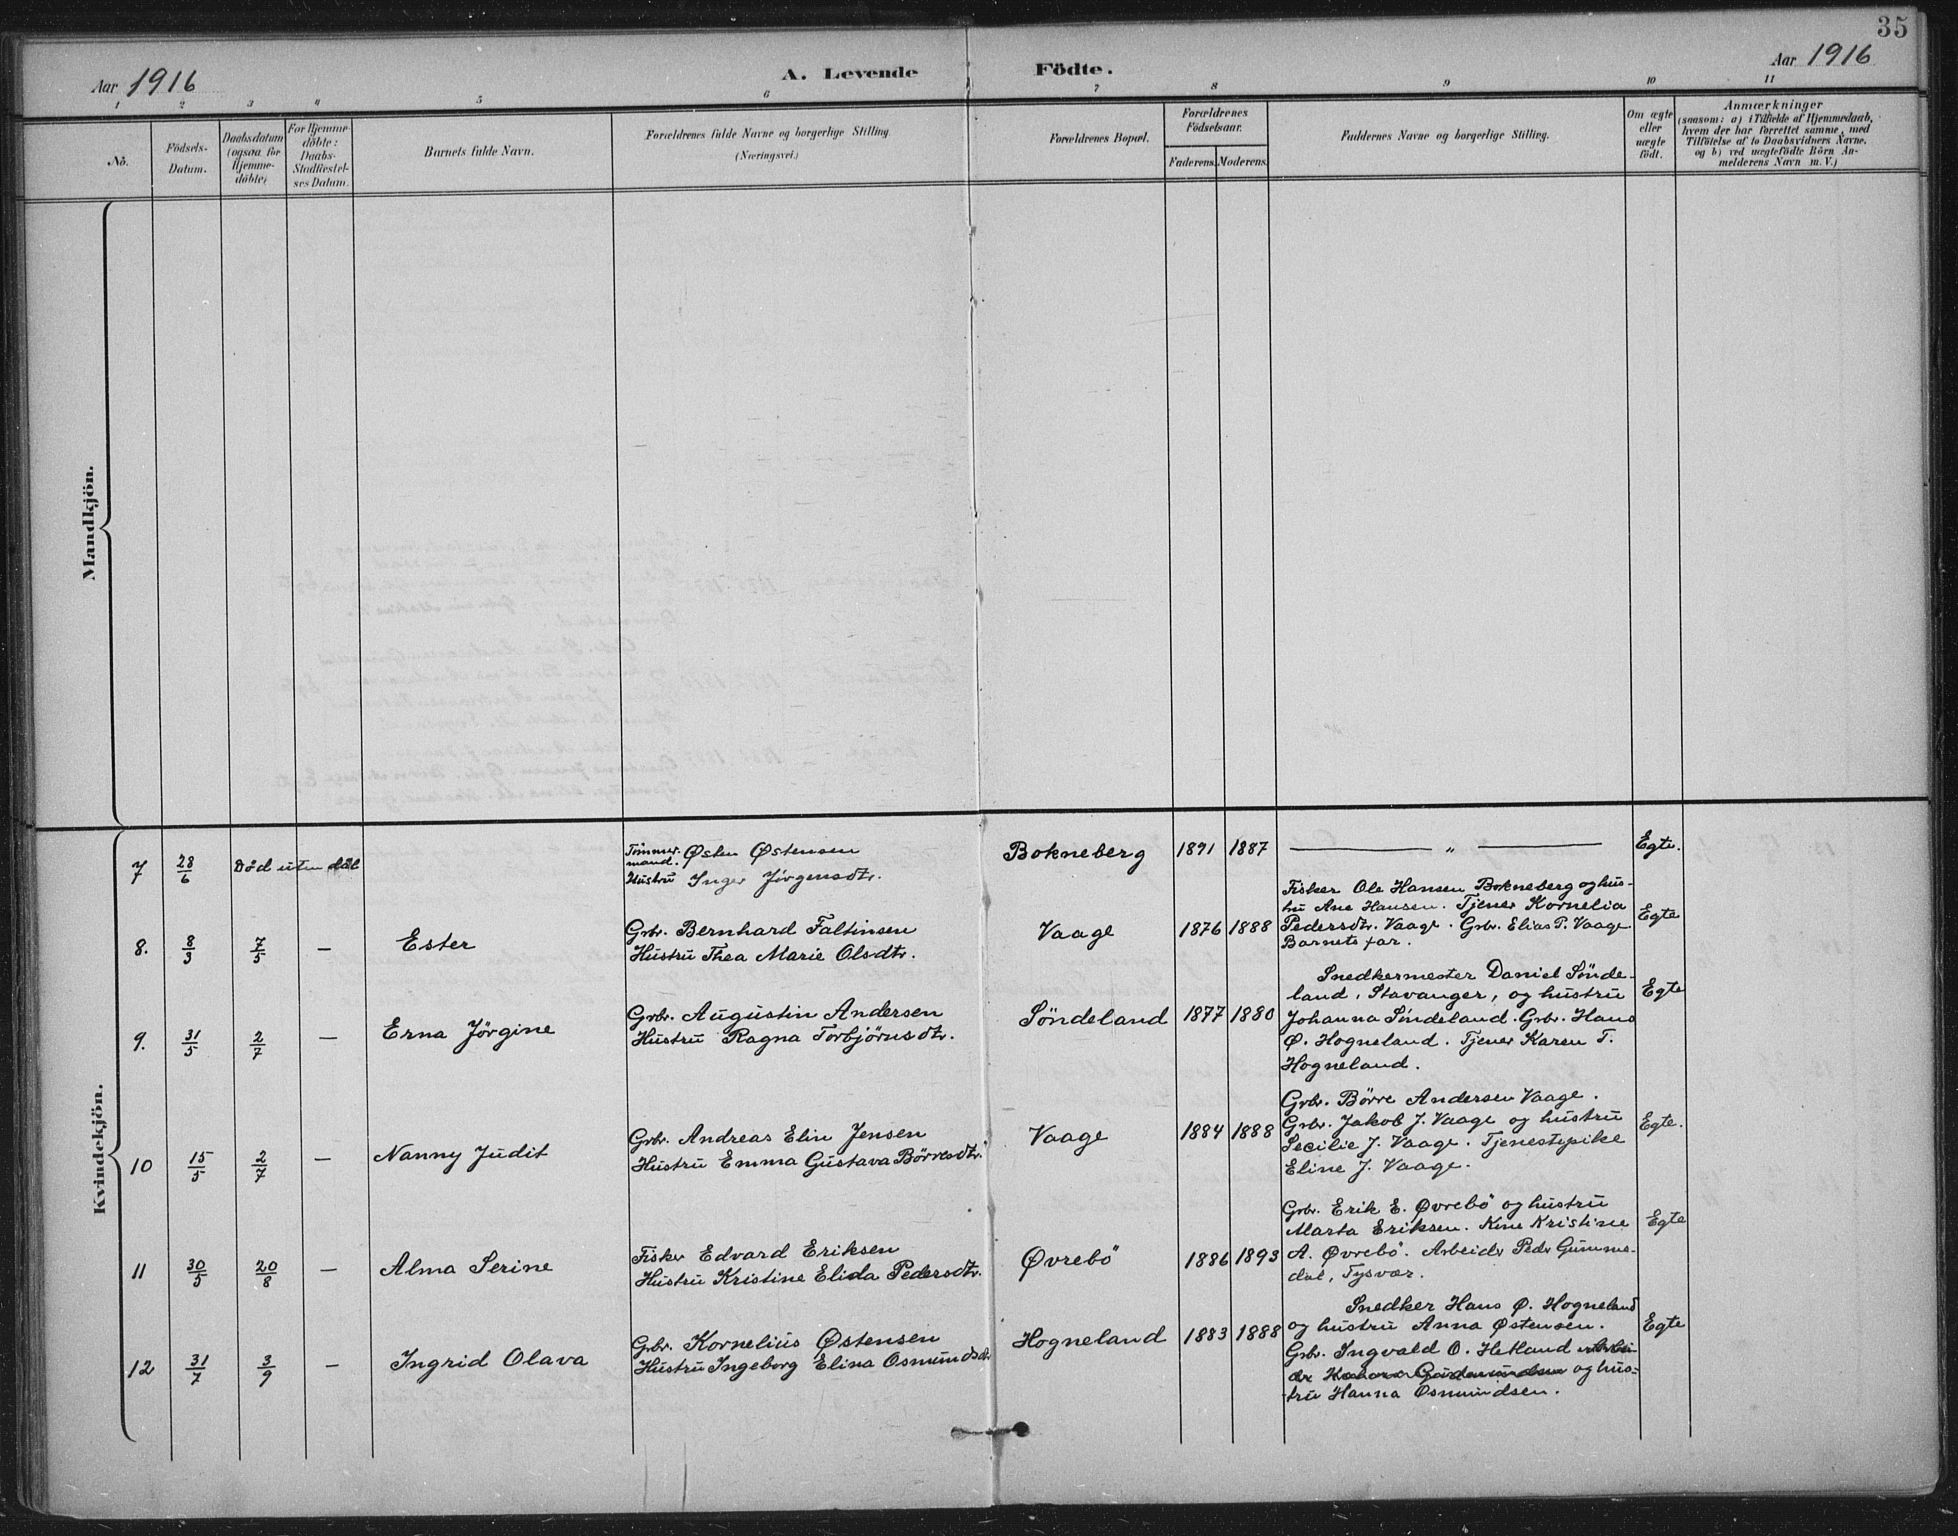 35
Aar 1916
A. Levende Födte.
Aar 1916
1 2 3 4 5 6 7 8 9 10 11
No.
Födsels-
Datum.
Daabsdatum
(ogsaa for
Hjemme-
döbte)
For Hjemme-
döbte:
Daabs-
Stadfæstel-
ses Datum.
Barnets fulde Navn.
Forældrenes fulde Navne og borgerlige Stilling.
(Næringsvei.)
Forældrenes Bopæl.
Forældrenes
Födselsaar.
Faderens. Moderens.
Faddernes Navne og borgerlige Stilling.
Om ægte
eller
uægte
födt.
Anmærkninger
(saasom: a) i Tilfælde af Hjemmedaab,
hvem der har forrettet samme, med
Tilföielse af to Daabsvidners Navne,
og b) ved uægtefödte Börn An-
melderens Navn m. V.)
Mandkjön.
Kvindekjön.
7 28/6 Död uten dåb
Tömmer-
mand. Østen Østensen
Hustru Inger Jörgensdtr.
Bokneberg 1891 1887 — „ — Egte.
8. 8/3 7/5 — Ester
Grbr. Bernhard Faltinsen
Hustru Thea Marie Olsdtr.
Vaage 1876 1888
Fisker Ole Hansen Bokneberg og hus-
tru Ane Hansen. Tjener Kornelia
Pedersdtr. Vaage. Grbr. Elias P. Vaage
Barnets far.
Egte
9. 31/5 2/7 — Erna Jörgine
Grbr. Augustin Andersen
Hustru Ragna Torbjörnsdtr.
Söndeland 1877 1880
Snedkermester Daniel Sönde-
land, Stavanger, og hustru
Johanna Söndeland. Grbr. Hans
Ø. Hogneland. Tjener Karen T.
Hogneland.
Egte
10 15/5 2/7 — Nanny Judit
Grbr. Andreas Elin Jensen
Hustru Emma Gustava Börresdtr.
Vaage 1884 1888
Grbr. Börre Andersen Vaage.
Grbr. Jakob J. Vaage og hustru
Secilie J. Vaage. Tjenestepike
Eline J. Vaage.
Egte.
11 30/5 20/8 — Alma Serine
Fisker Edvard Eriksen
Hustru Kristine Elida Pedersdtr.
Øvrebö 1886 1893
Grbr. Erik E. Øvrebö og hustru
Marta Eriksen. Kine Kristine
A. Øvrebö. Arbeider Peder Gumme-
dal, Tysvær.
Egte
12 31/7 3/9 — Ingrid Olava
Grbr. Kornelius Østensen
Hustru Ingeborg Elina Osmundsdtr
Hogneland 1883 1888
Snedker Hans Ø. Hogneland
og hustru Anna Østensen.
Grbr. Ingvald O. Hetland
og hus-
tru Hanna Osmundsen.
Egte